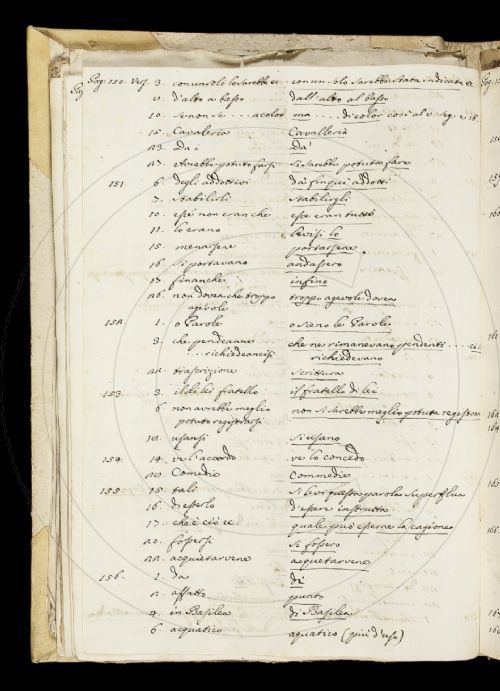 Pag. 150. Vers. 3. con un solo losarebbe ec con un solo sarebbe stata indicata ec
9. d'alto a basso dall'alto al basso
10. se non se .... a color ma .... di color così al v. seg. e 18.
15. Cavaleria Cavalleria
23. Dai Da'
27. etsrebbe potuto farsi si sarebbe potuto fare
151. 6. degli addottivi da' finqui addotti
7. stabilirli stabilirgli
10. esse non eran che esse eran tutto
11. lo erano levisi lo
15. menarsene portarsene
16. si portavano andassero
17. finanche infino
26. non dovea che troppo troppo agevole dovea
agevole
152. 1. o Parole o sieno le Parole
3. che pendeanne che ne rimanevano pendenti .... ciò
.... richiedeancisi richiedevano
22. trascrizione scrittura
153. 3. il di lei fratello il fratello di lei
6. non avrebbe meglio non si sarebbe meglio potuta registrare
potuto registrarsi
19. usansi si usano
154. 14. ve l'accordo ve lo concedo
29. Comedie Commedie
155. 15. tali si levi questa parola superflua
16. di esserlo d'essere instrutto
17. che è ciò ec quale può esserne la cagione
20. fossersi si fossero
22. acquietarvene acquetarvene
156. 1. da di
2. affatto punto
4. in Basilea di Basilea
6. acquatico aquatico (più d'uso)